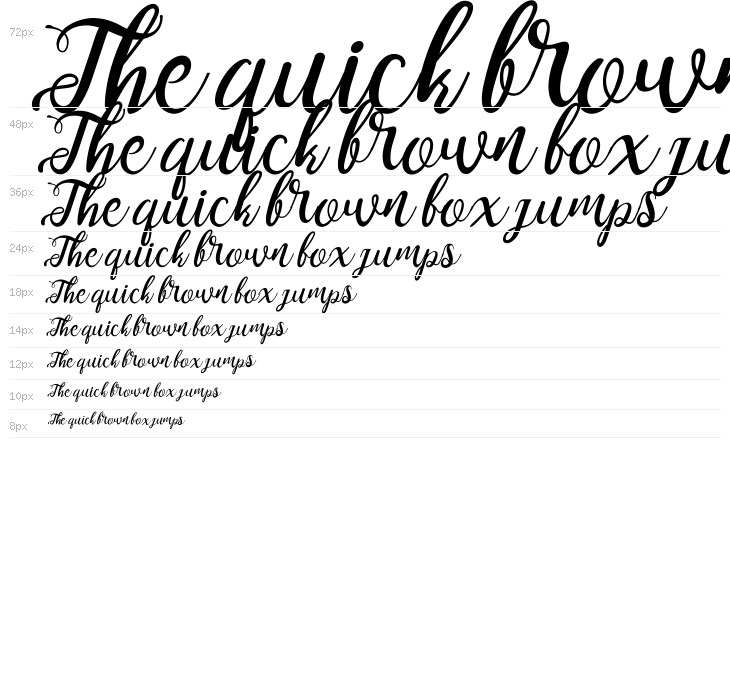 72px The quick brown
48px The quick brown box ju
36px The quick brown box jumps
24px The quick brown box jumps
18px The quick brown box jumps
14px The quick brown box jumps
12px The quick brown box jumps
10px The quick brown box jumps
8px The quick brown box jumps